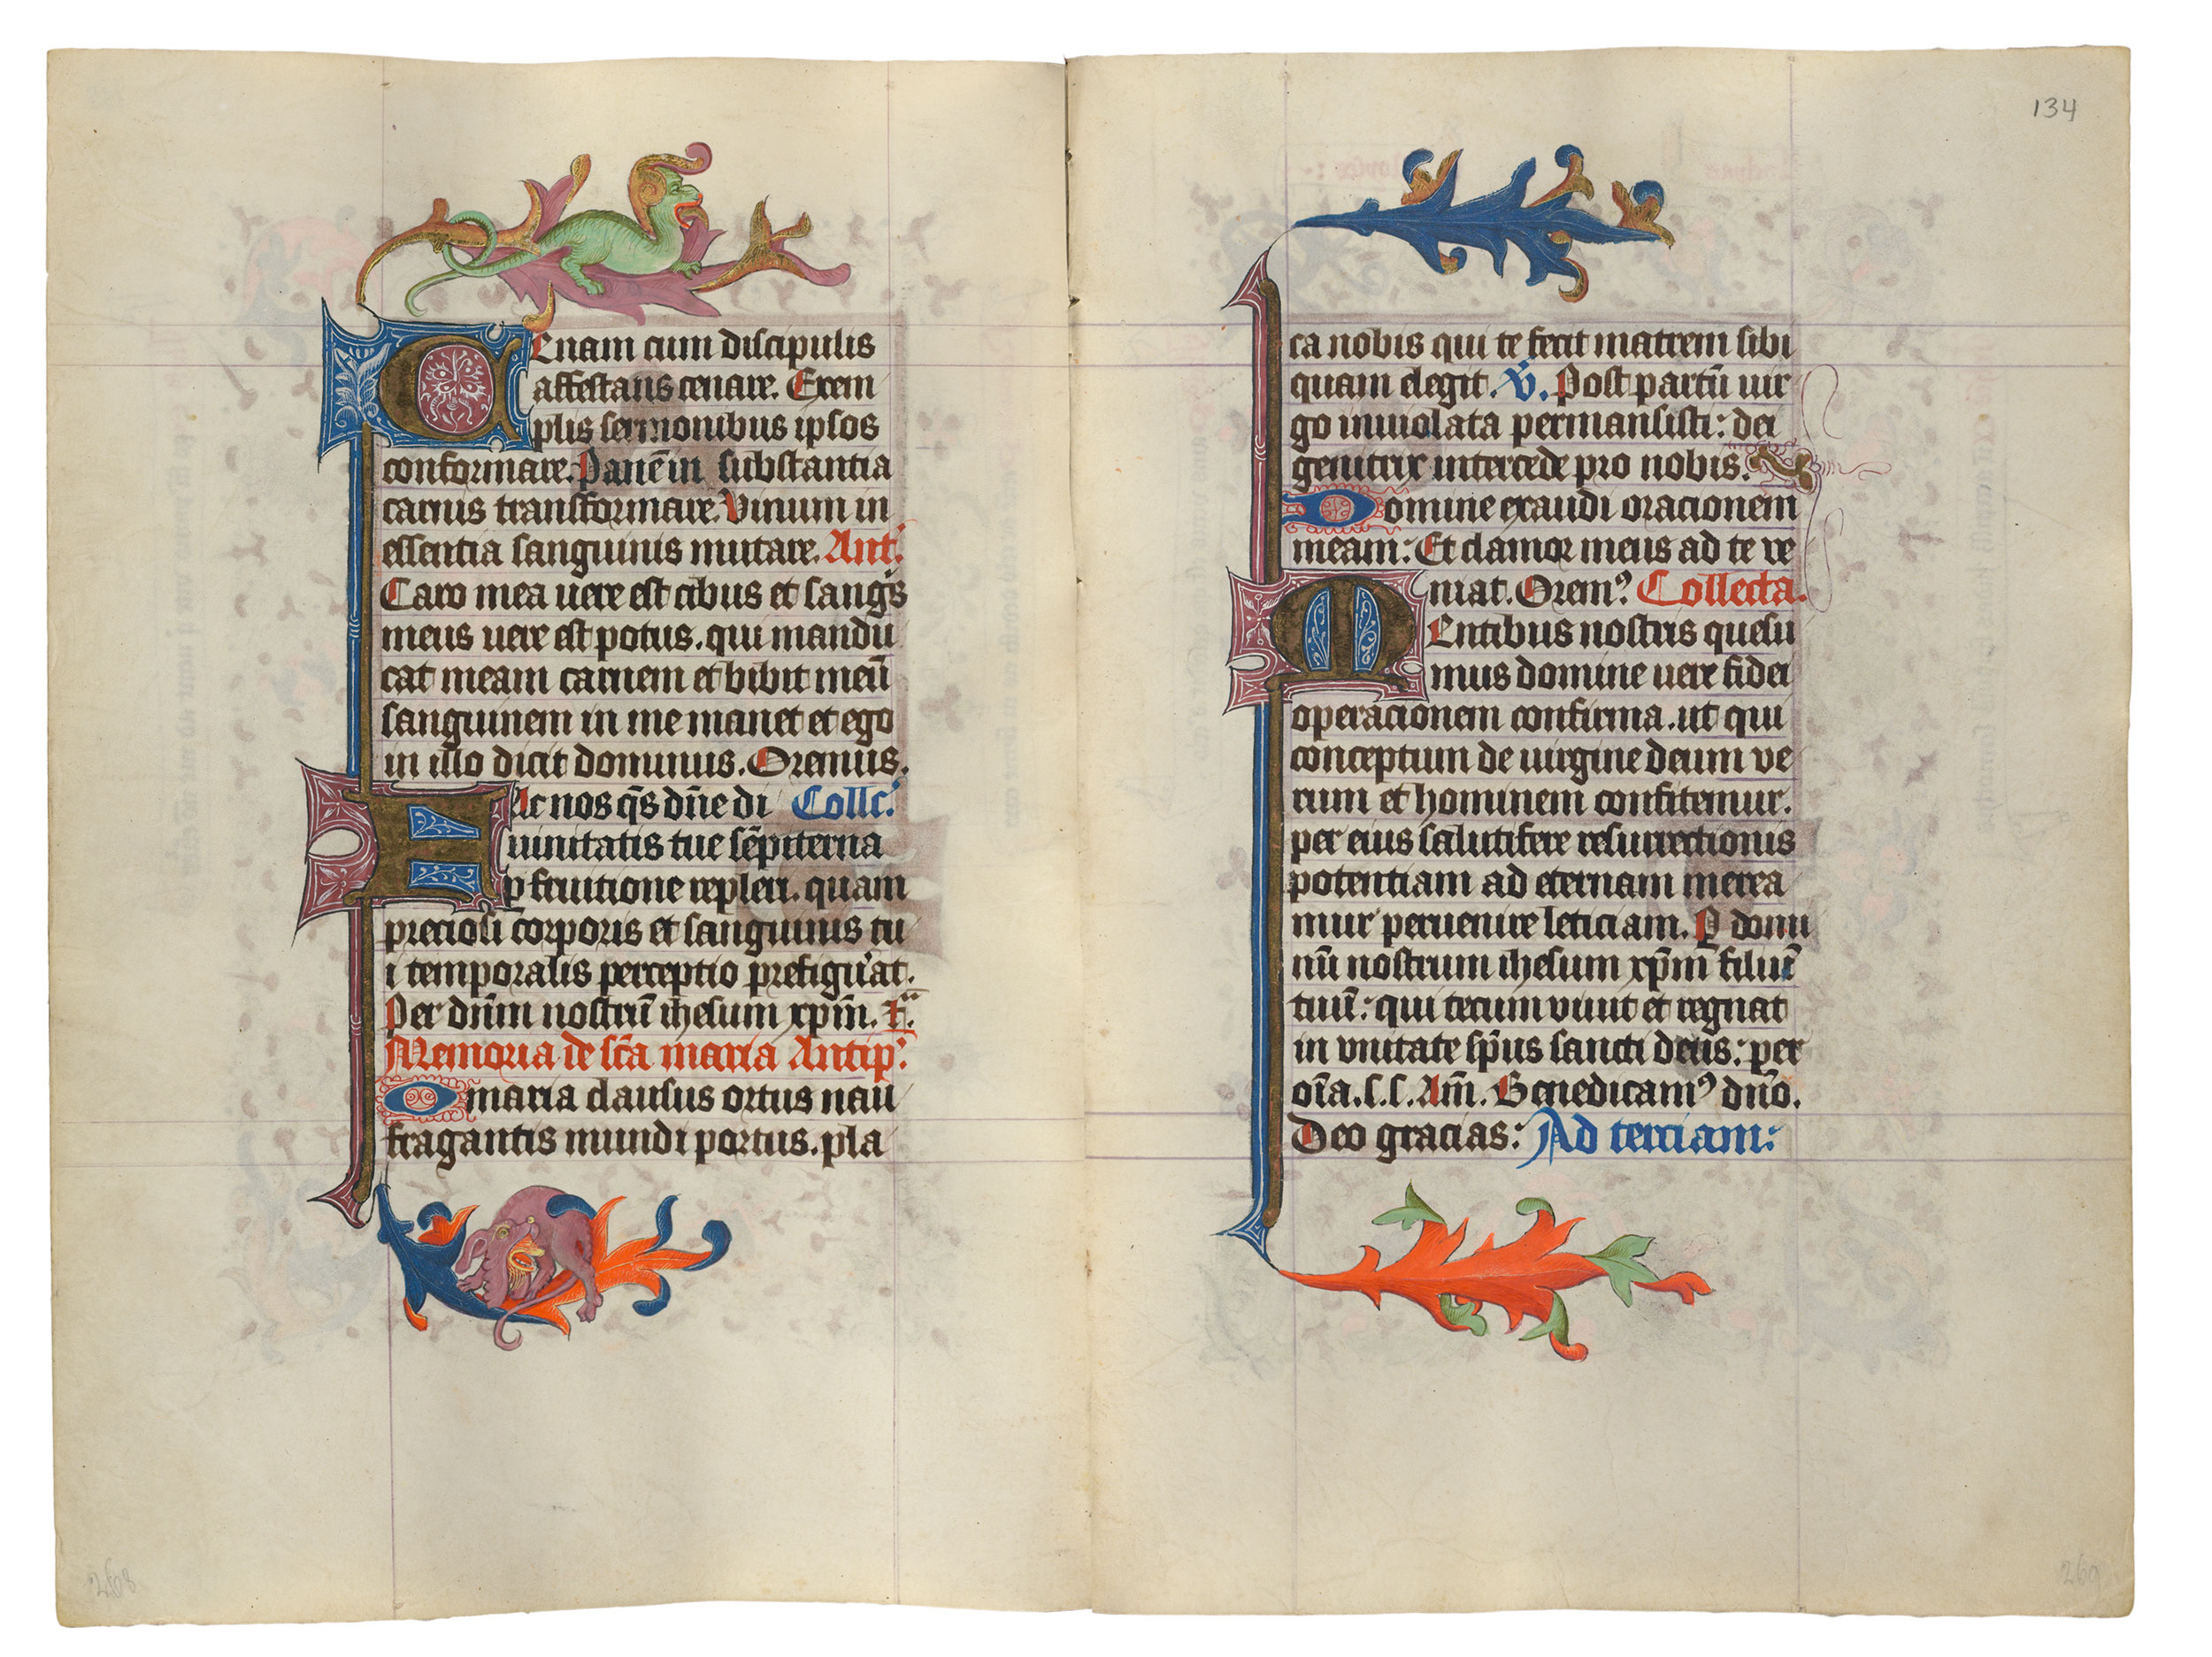 Cenam cum discipulis
affectans cenare. Exem
plis sermonibus ipsos
conformare. Panē in substantia
carnis transformare. Vinum in
essentia sanguinis mutare. Ant.
Caro mea uere est cibus et sang's
meus uere est potus. qui mandu
cat meam carnem et bibit meū
sanguinem in me manet et ego
in illo dicit dominus. Oremus.
Fac nos q̄s dn̄e di Collc.
uinitatis tue sēpiterna
ꝑ fruitione repleri. quam
preciosi corporis et sanguinis tu
i temporalis perceptio prefigurat.
Per dn̄m nostrū ih̄esum xp̄m.
Memoria de sc̄a maria Antip'
O maria clausus ortus nau
fragantis mundi portus. pla
134
ca nobis qui te fecit matrem sibi
quam elegit. V̉. Post partū uir
go inuiolata permansisti: dei
genitrix intercede pro nobis.
Domine exaudi oracionem
meam: Et clamor meus ad te ve
niat. Oremꝰ Collecta.
Mentibus nostris quesu
mus domine uere fidei
operacionem confirma. ut qui
conceptum de uirgine deum ve
rum et hominem confitemur.
per eius salutifere resurrectionis
potentiam ad eternam merea
mur peruenire leticiam. P domi
nū nostrum ihesum xp̄m filiū
tuū: qui tecum viuit et regnat
in vnitate sp̄us sancti deus: per
oīa. s. s. Am̄. Benedicamꝰ dn̄o.
Deo gracias: Ad terciam:
268
269